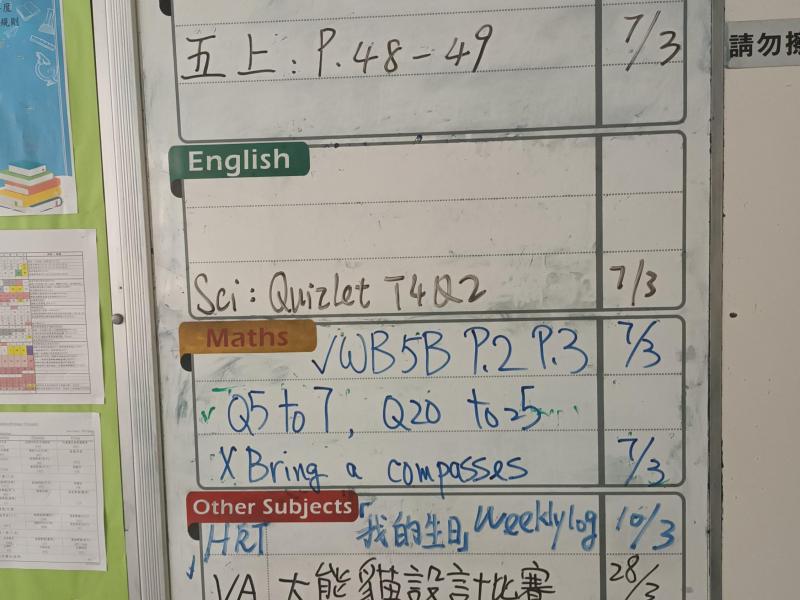 五上：P.48-49 7/3
請勿擦
English
Sci: Quizlet T4Q2 7/3
Maths
✓WB5B P.2 P.3 7/3
✓Q5 to 7, Q20 to 25
X Bring a compasses 7/3
Other Subjects
HRT 「我的生日」Weeklylog 10/3
VA 大熊貓設計比賽 28/3